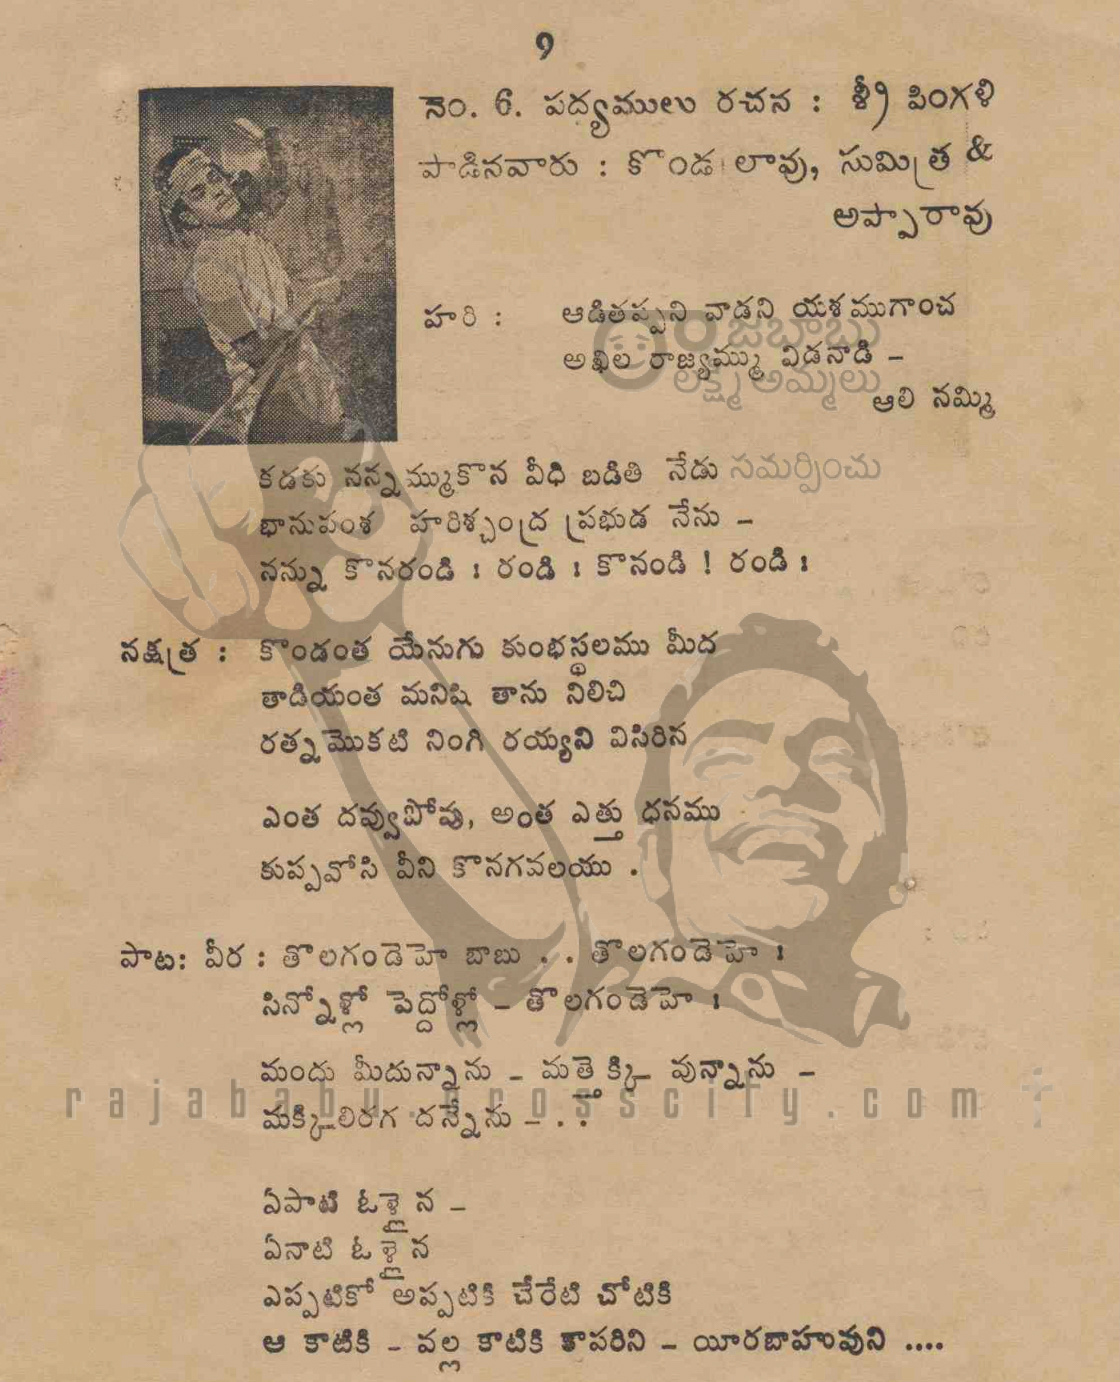 9
నెం. 6. పద్యములు రచన : శ్రీ పింగళి
పాడినవారు : కొండలరావు, సుమిత్ర &
అప్పారావు
హరి : ఆడితప్పని వాడని యశముగాంచ
అఖిల రాజ్యమ్ము విడనాడి –
ఆలి నమ్మి
రాజబాబు
లక్ష్మీ అమ్మలు
కడకు నన్నమ్ముకొన వీధి బడితి నేడు
సమర్పించు
భానువంశ హరిశ్చంద్ర ప్రభుడ నేను –
నన్ను కొనరండి ! రండి ! కొనండి ! రండి !
నక్షత్ర : కొండంత యేనుగు కుంభస్థలము మీద
తాడియంత మనిషి తాను నిలిచి
రత్నమొకటి నింగి రయ్యని విసిరిన
ఎంత దవ్వుపోవు, అంత ఎత్తు ధనము
కుప్పవోసి వీని కొనగవలయు .
పాట: వీర : తొలగండెహె బాబు . . తొలగండెహె !
సిన్నోళ్లో పెద్దోళ్లో – తొలగండెహె !
మందు మీదున్నాను – మత్తెక్కి వున్నాను –
rajababu.crosscity.com
మక్కిలిరగ దన్నేను – . .
ఏపాటి ఓళ్లైన –
ఏనాటి ఓళ్లైన
ఎప్పటికో అప్పటికి చేరేటి చోటికి
ఆ కాటికి – వల్ల కాటికి కాపరిని – యీరబాహువుని ....